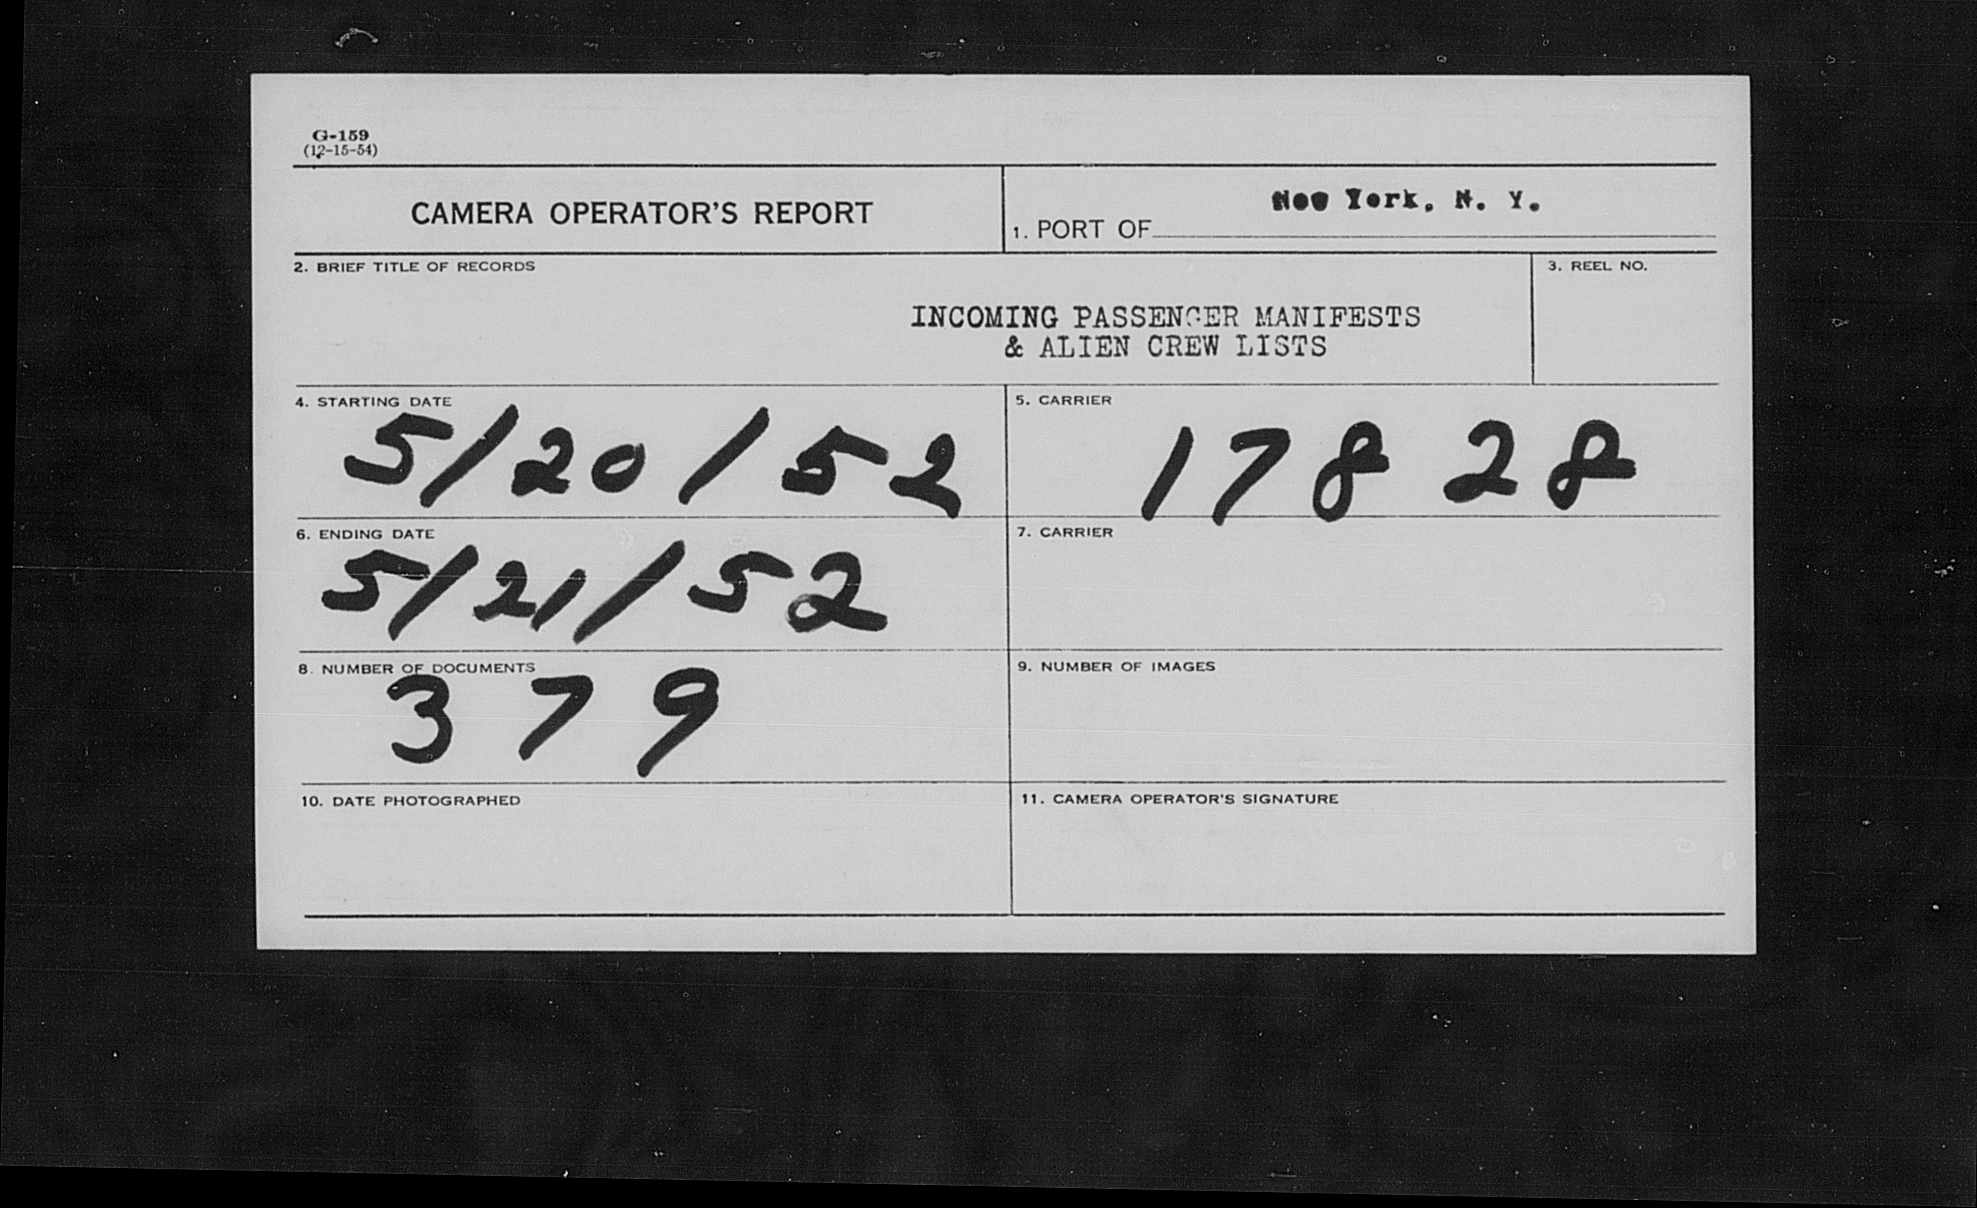 G-159
(12-15-54)
CAMERA OPERATOR'S REPORT
1. PORT OF New York, N. Y.
2. BRIEF TITLE OF RECORDS
INCOMING PASSENGER MANIFESTS
& ALIEN CREW LISTS
3. REEL NO.
4. STARTING DATE
5/20/52
5. CARRIER
17828
6. ENDING DATE
5/21/52
7. CARRIER
8. NUMBER OF DOCUMENTS
379
9. NUMBER OF IMAGES
10. DATE PHOTOGRAPHED
11. CAMERA OPERATOR'S SIGNATURE